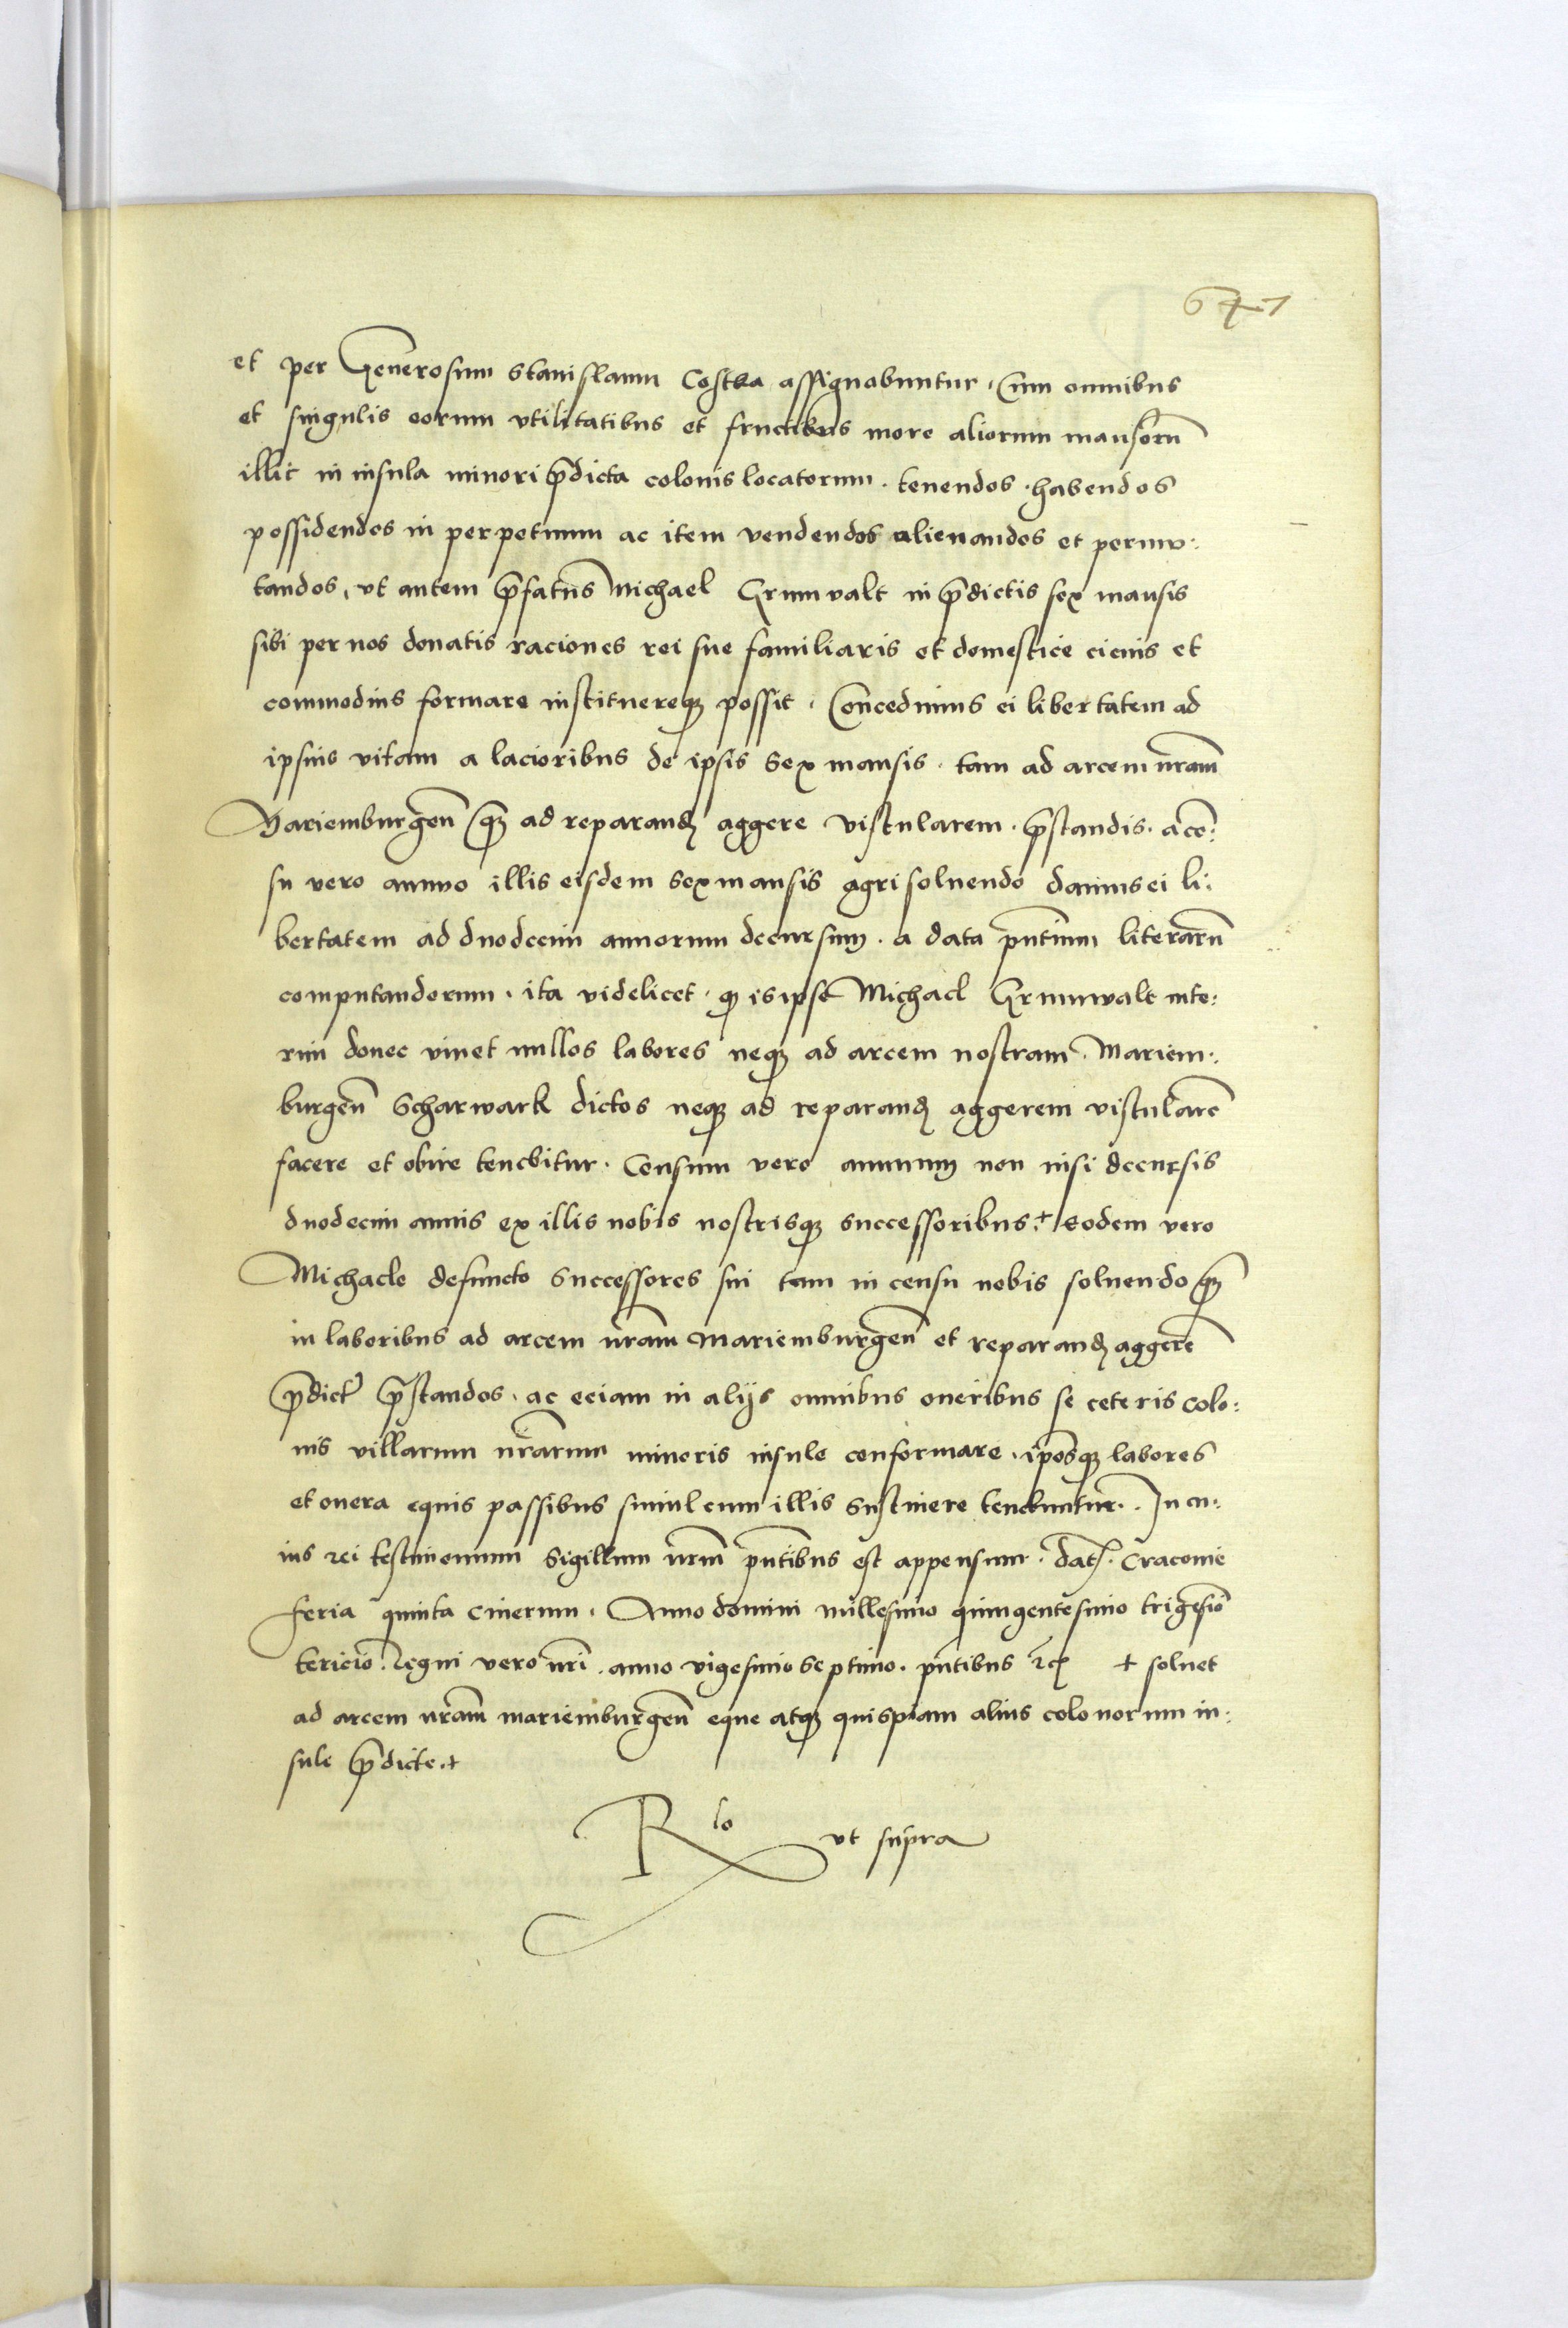 671
et per Generosum Stanislaum Costka assignabuntur. Cum omnibus
et singulis eorum vtilitatibus et fructibus more aliorum mansorū
illic in insula minori p̄dicta colonis locatorum. tenendos. habendos
possidendos in perpetuum ac item vendendos alienandos et permu:
tandos, vt autem p̄fatus Michael Grunvalt in p̄dictis sex mansis
sibi per nos donatis raciones rei sue familiaris et domestice cicius et
commodius formare instituereqꝫ possit. Concedimus ei libertatem ad
ipsius vitam a lacioribus de ipsis sex mansis. tam ad arcem nr̄am
Mariemburgeñ qꝫ ad reparandꝫ aggere vistularem. p̄standis. a cē:
su vero annuo illis eisdem sex mansis agri soluendo damus ei li:
bertatem ad duodecim annorum decursum. a data pn̄tium literarū
computandorum. ita videlicet. qꝫ is ipse Michael Grunwalt inte:
rim donec viuet nullos labores neqꝫ ad arcem nostram. Mariem:
burgeñ Scharwark dictos neqꝫ ad reparandꝫ aggerem vistularē
facere et obire tenebitur. Censum vero annuum non nisi decursis
duodecim annis ex illis nobis nostrisqꝫ successoribus.+ Eodem vero
Michaele defuncto successores sui tam in censu nobis soluendo qꝫ
in laboribus ad arcem nr̄am Mariemburgeñ et reparandꝫ aggerē
p̄dict̄ p̄standos. ac eciam in alijs omnibus oneribus se ceteris colo:
nis villarum nr̄arum minoris insule conformare. ip̄osqꝫ labores
et onera equis passibus simul cum illis sustinere tenebuntur. In cu:
ius rei testimonium sigillum nr̄m pn̄tibus est appensum. Dat̄. Cracouie
feria quinta Cinerum. Anno domini millesimo quingentesimo trigesiō
tercio. Regni vero nr̄i. anno vigesimo septimo. pn̄tibus ꝛcꝫ + soluet
ad arcem nr̄am mariemburgeñ eque atqꝫ quispiam alius colonorum in:
sule p̄dicte.+
R lo vt supra